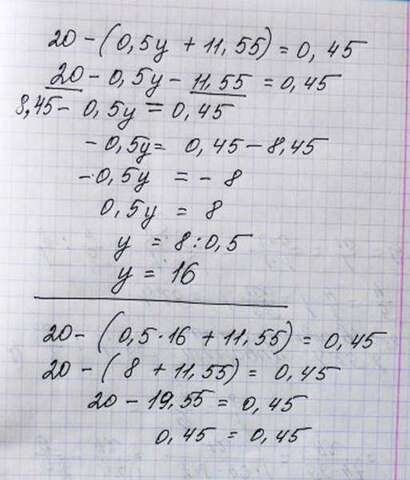 20 - (0,5y + 11,55) = 0,45
20 - 0,5y - 11,55 = 0,45
8,45 - 0,5y = 0,45
- 0,5y = 0,45 - 8,45
- 0,5y = - 8
0,5y = 8
y = 8 : 0,5
y = 16
20 - (0,5 · 16 + 11,55) = 0,45
20 - (8 + 11,55) = 0,45
20 - 19,55 = 0,45
0,45 = 0,45